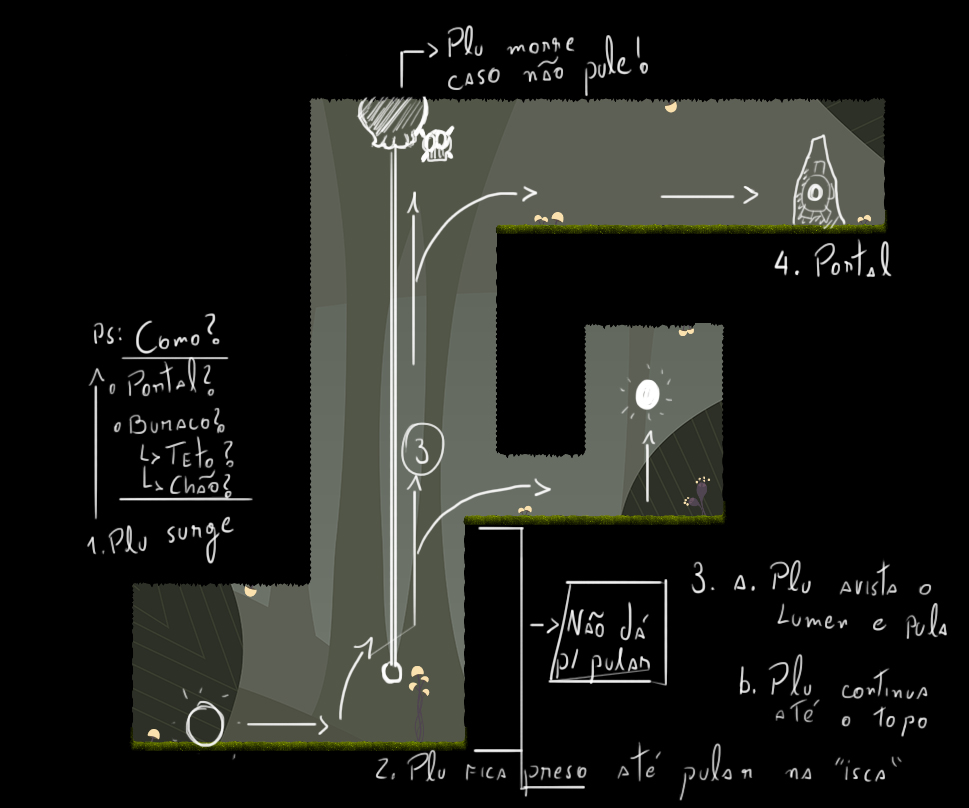 Plu morre
caso não pule!
4. Portal
PS: Como?
Portal?
Buraco?
↳ Teto?
↳ Chão?
1. Plu surge
3
Não dá
p/ pular
3. a. Plu avista o
Lumen e pula
b. Plu continua
até o topo
2. Plu fica preso até pular na "isca"